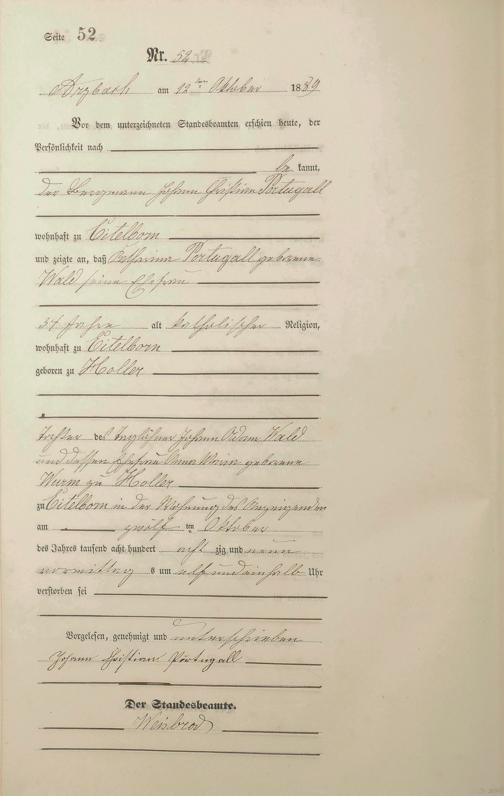 Seite 52
Nr. 52
Arzbach am 12ten Oktober 1889
Vor dem unterzeichneten Standesbeamten erschien heute, der
Persönlichkeit nach
be kannt,
der Bergmann Johann Christian Portugall
wohnhaft zu Eitelborn
und zeigte an, daß Katharina Portugall geborene
Wald seine Ehefrau
54 Jahre alt katholischer Religion,
wohnhaft zu Eitelborn
geboren zu Holler
Tochter des Taglöhner Johann Adam Wald
und dessen Ehefrau Anna Maria geborene
Wurm zu Holler
zu Eitelborn in der Wohnung des Anzeigenden
am zwölf ten Oktober
des Jahres tausend acht hundert acht zig und neun
vormittag s um elf und einhalb Uhr
verstorben sei
Vorgelesen, genehmigt und unterschrieben
Johann Christian Portugall
Der Standesbeamte.
Weisbrod